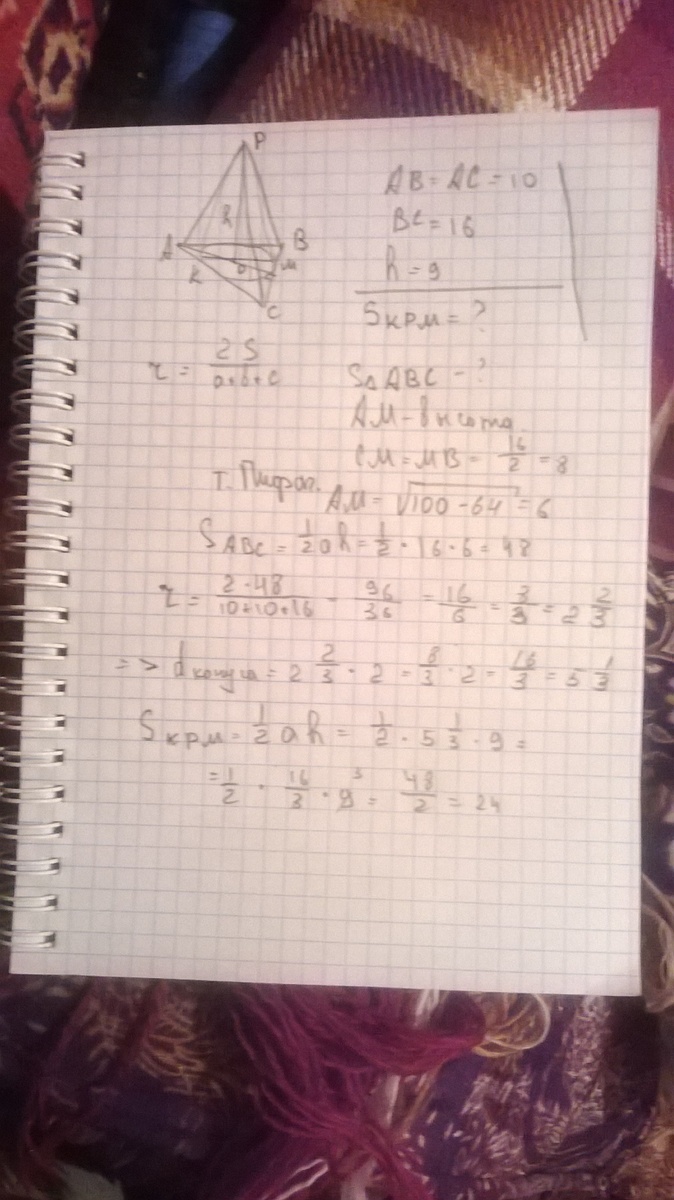 P
h
A
B
K
O
M
C
AB = AC = 10
BC = 16
h = 9
S КРМ = ?
r = 2S / a+b+c
S△ABC - ?
AM - высота
CM = MB = 16/2 = 8
т. Пифаг. AM = √100 - 64 = 6
S ABC = 1/2 ah = 1/2 · 16 · 6 = 48
r = 2·48 / 10+10+16 = 96/36 = 16/6 = 3/3 = 2 2/3
=> d конуса = 2 2/3 · 2 = 8/3 · 2 = 16/3 = 5 1/3
S крм = 1/2 ah = 1/2 · 5 1/3 · 9 =
= 1/2 · 16/3 · 9 3 = 48/2 = 24